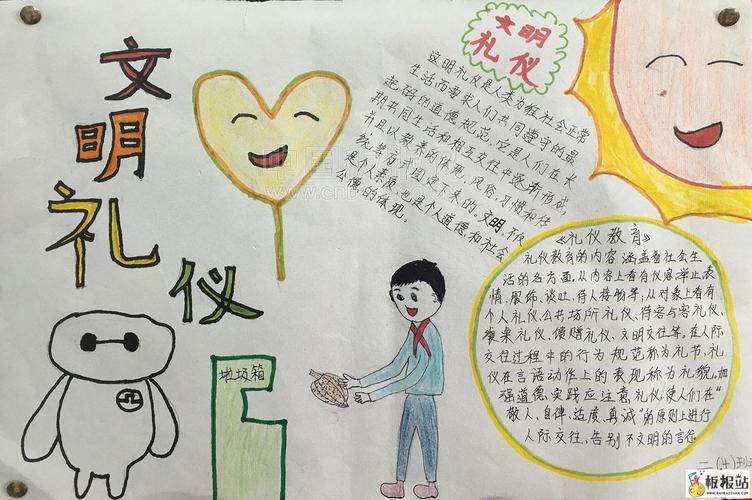 文明礼仪
文明
礼仪
这明礼仪是人类为维社会正常
生活而要求人们共同遵守的最
起码的道德规范，它是人们在长
期共同生活和相互交往中逐渐形成，
并且以教养的体现，风俗、习惯和传
统等方式固定下来的，文明，不仅
是个人素质，也是个人道德和社会
公德的体现。
垃圾箱
《礼仪教育》
礼仪教育的内容涵盖着社会生
活的各方面。从内容上看有仪容、举止、表
情、服饰、谈吐、待人接物等；从对象上看有
个人礼仪、公共场所礼仪、待客与客礼仪、
餐桌礼仪、馈赠礼仪、文明交往等。在人际
交往过程中的行为规范称为礼节，礼
仪在言语动作上的表现称为礼貌。加
强道德实践应注意，礼仪使人们在"
敬人、自律、适度、真诚"的原则上进行
人际交往，告别不文明的言行
二(4)班
板报站